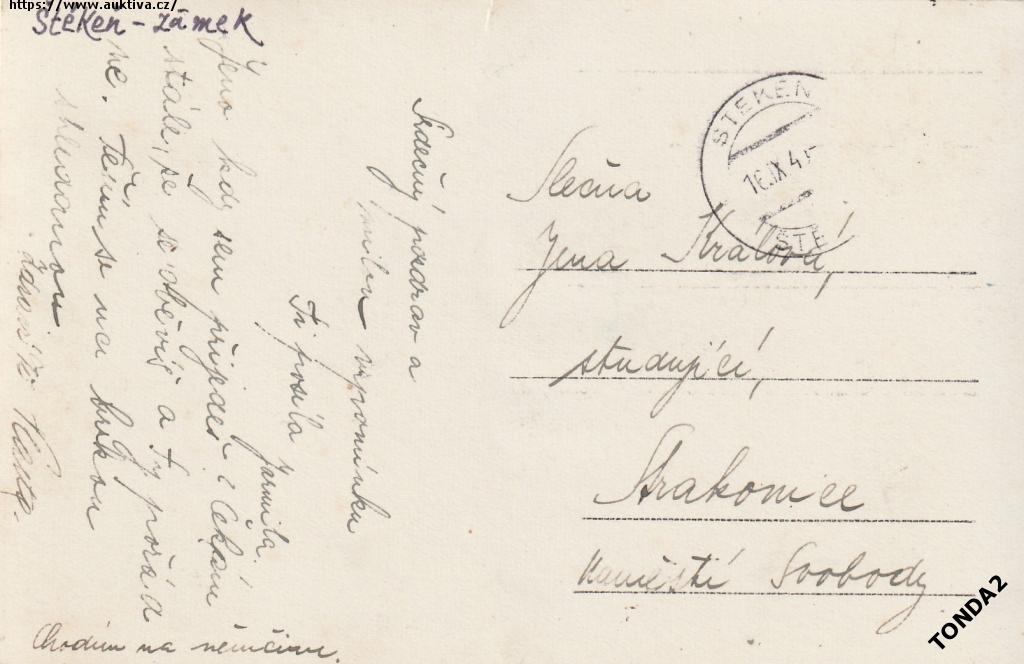 https://www.auktiva.cz/
Štěkeň - zámek
Srdečný pozdrav a
milou vzpomínku
Ti posílá
Jarmila.
Jeno, kdy sem přijedeš? Čekám
stále, že se objevíš a Ty pořád
ne. Těším se na brzkou
shledanou
Chodím na němčinu.
ŠTĚKEŇ
16.IX.4
ŠTĚ
Slečna
Jena Králová,
studující,
Strakonice
náměstí Svobody
TONDA2